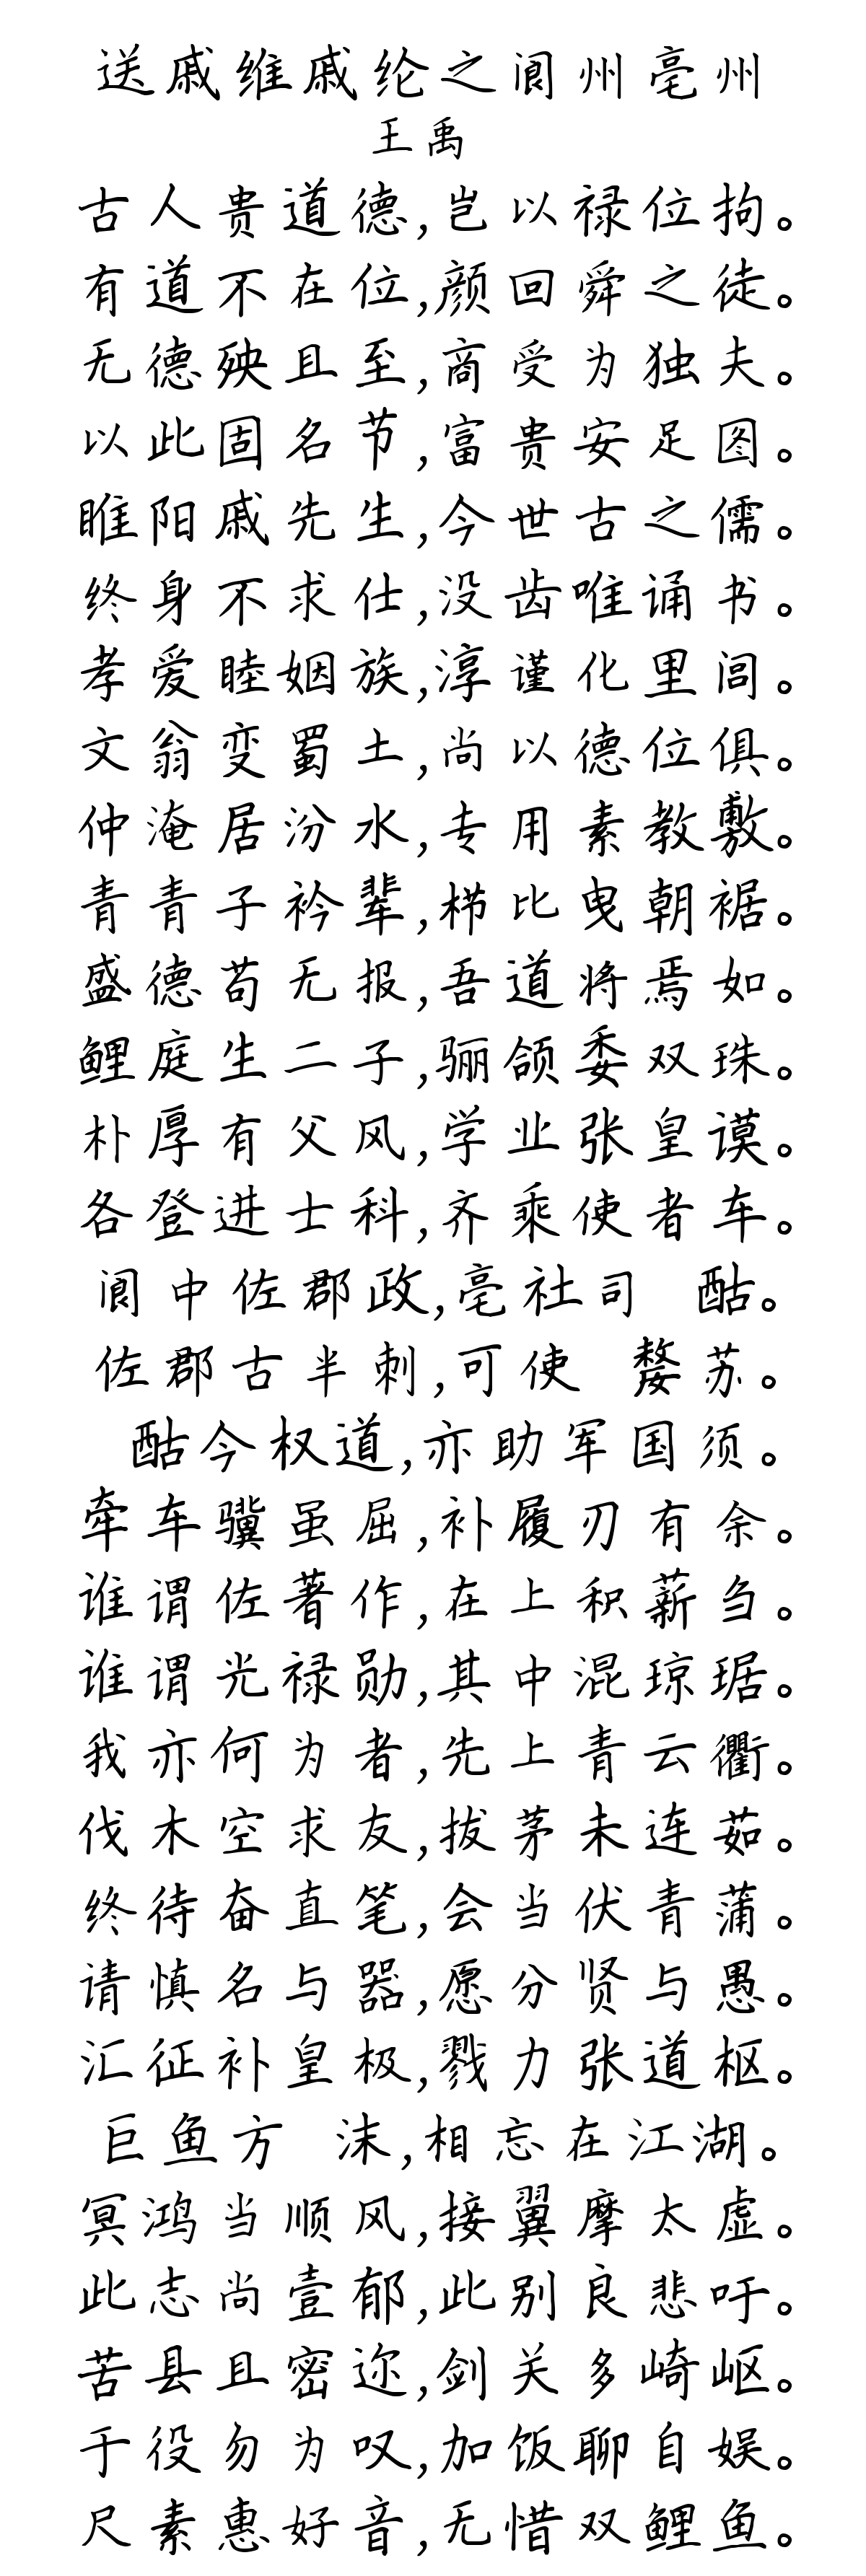 送戚维戚纶之阆州亳州
王禹
古人贵道德,岂以禄位拘。
有道不在位,颜回舜之徒。
无德殃且至,商受为独夫。
以此固名节,富贵安足图。
睢阳戚先生,今世古之儒。
终身不求仕,没齿唯诵书。
孝爱睦姻族,淳谨化里闾。
文翁变蜀土,尚以德位俱。
仲淹居汾水,专用素教敷。
青青子衿辈,栉比曳朝裾。
盛德苟无报,吾道将焉如。
鲤庭生二子,骊颌委双珠。
朴厚有父风,学业张皇谟。
各登进士科,齐乘使者车。
阆中佐郡政,亳社司 酤。
佐郡古半刺,可使 嫠苏。
酤今权道,亦助军国须。
牵车骥虽屈,补履刃有余。
谁谓佐著作,在上积薪刍。
谁谓光禄勋,其中混琼琚。
我亦何为者,先上青云衢。
伐木空求友,拔茅未连茹。
终待奋直笔,会当伏青蒲。
请慎名与器,愿分贤与愚。
汇征补皇极,戮力张道枢。
巨鱼方 沫,相忘在江湖。
冥鸿当顺风,接翼摩太虚。
此志尚壹郁,此别良悲吁。
苦县且密迩,剑关多崎岖。
于役勿为叹,加饭聊自娱。
尺素惠好音,无惜双鲤鱼。